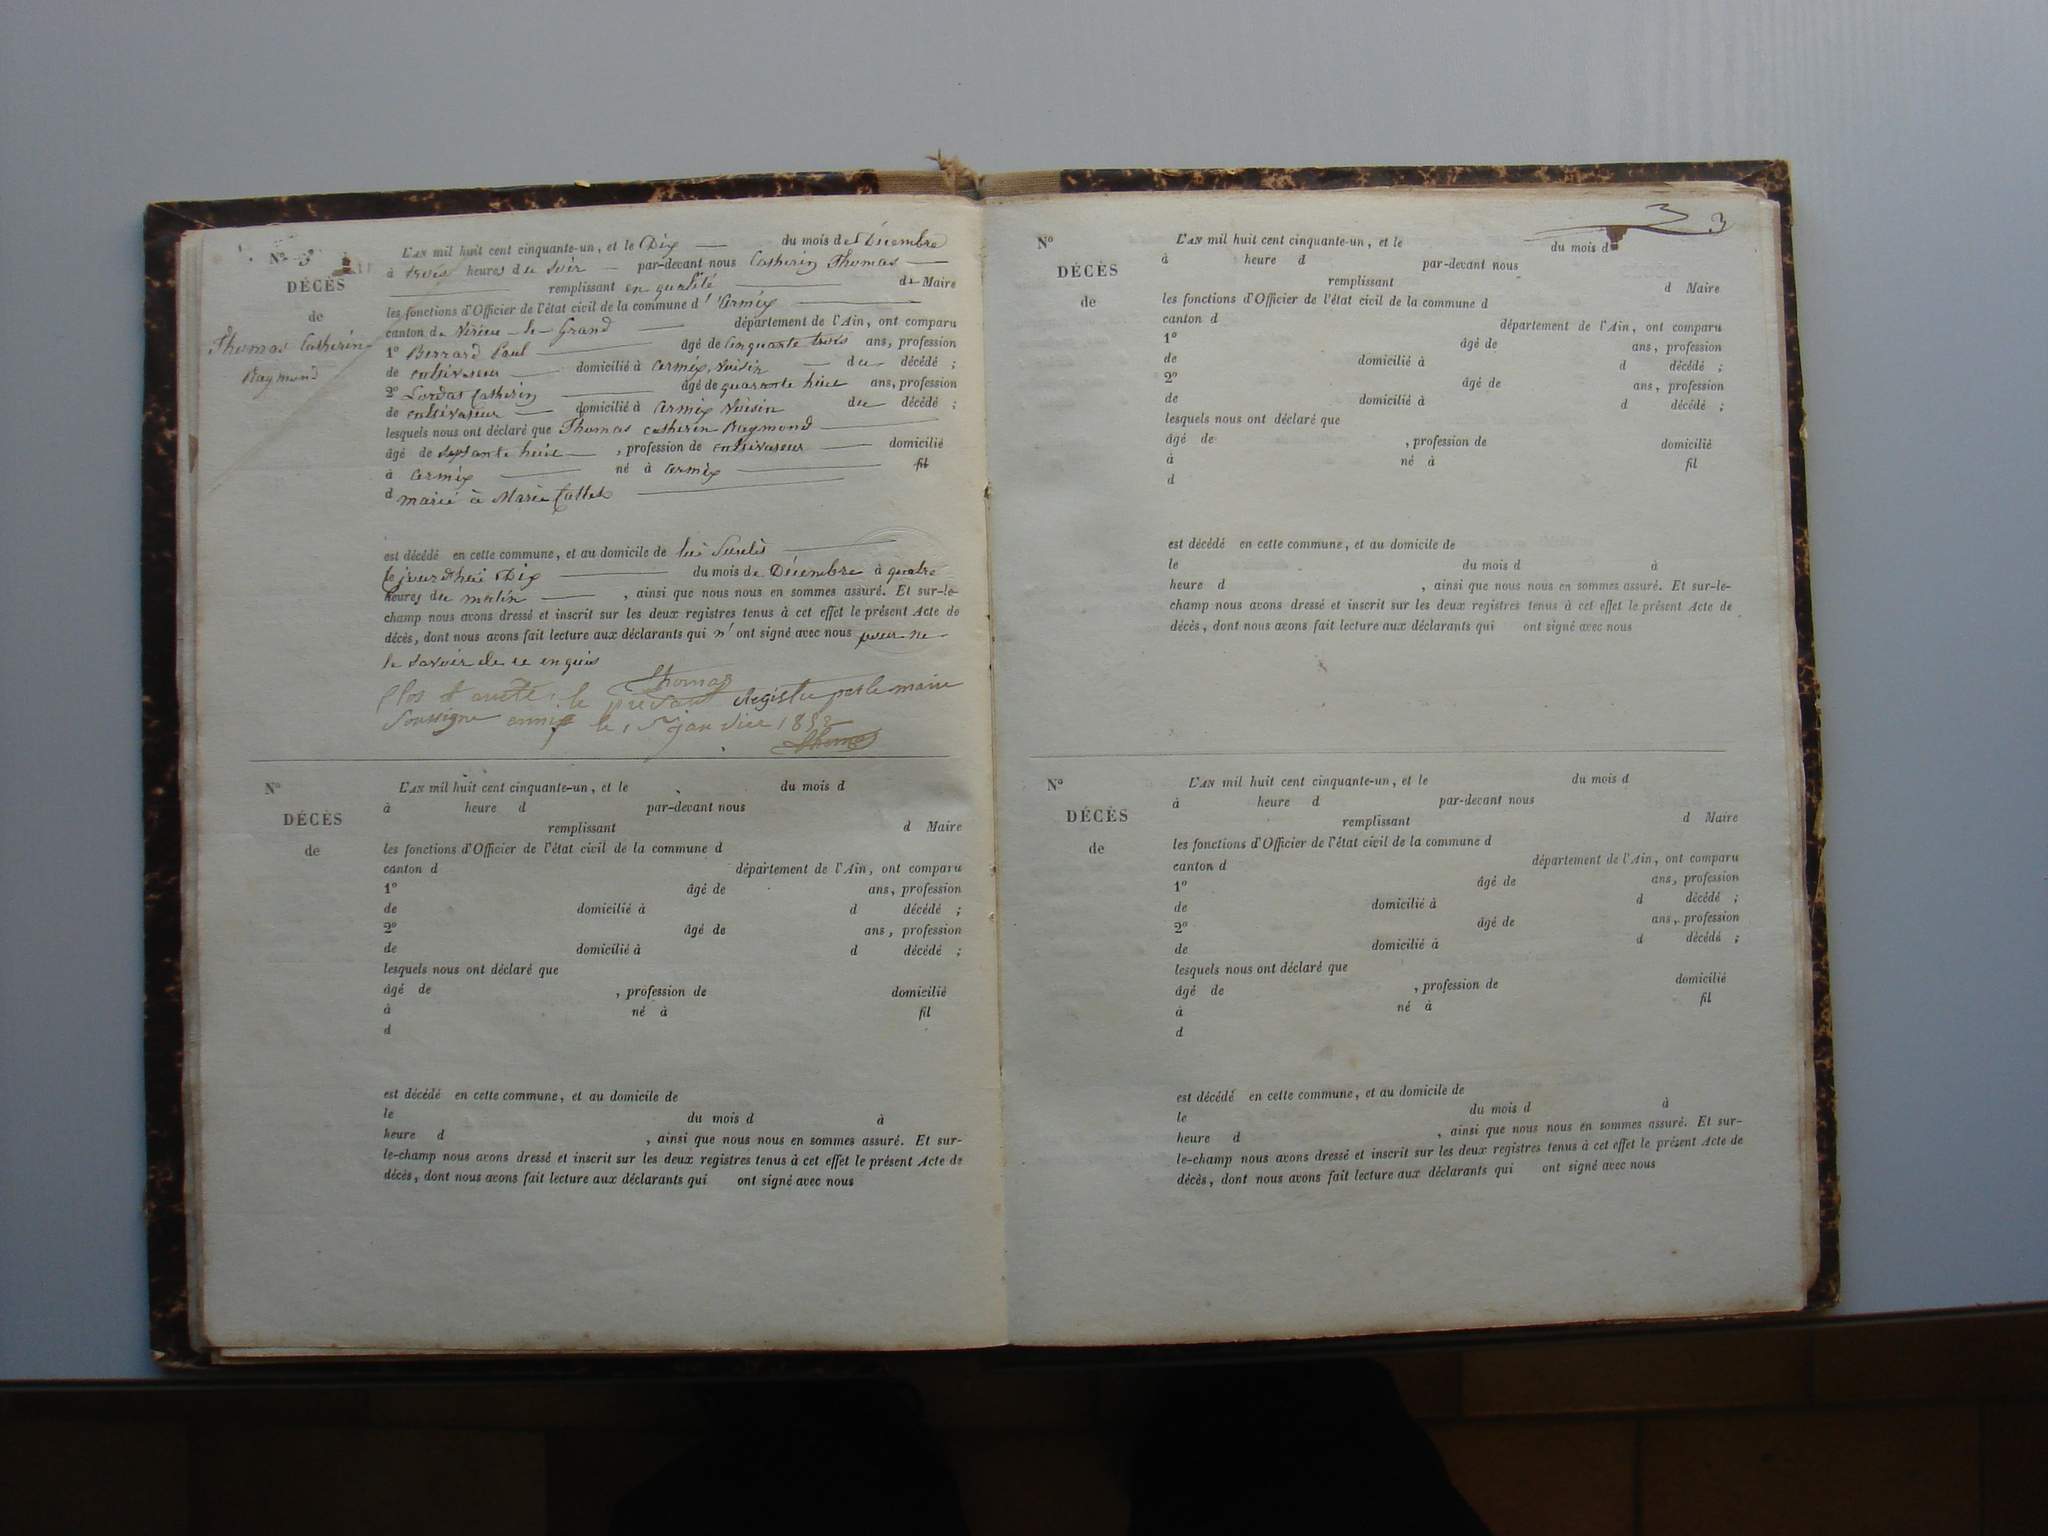 N° 5
DÉCÈS
de
Thomas Catherin
Raymond
L'AN mil huit cent cinquante-un, et le Dix du mois de Décembre
à trois heures du Soir par-devant nous Catherin Thomas
remplissant en qualité de Maire
les fonctions d'Officier de l'état civil de la commune d' Armix
canton de Virieu-le-Grand département de l'Ain, ont comparu
1° Berrard Paul âgé de Cinquante trois ans, profession
de cultivateur domicilié à Armix, Voisin du décédé ;
2° Lordat Catherin âgé de quarante huit ans, profession
de cultivateur domicilié à Armix Voisin du décédé ;
lesquels nous ont déclaré que Thomas Catherin Raymond
âgé de septante huit , profession de cultivateur domicilié
à Armix né à Armix fil
d marié à Marie
est décédé en cette commune, et au domicile de lui
jourdhui Dix du mois de Décembre à quatre
heures du matin , ainsi que nous nous en sommes assuré. Et sur-le-
champ nous avons dressé et inscrit sur les deux registres tenus à cet effet le présent Acte de
décès, dont nous avons fait lecture aux déclarants qui n' ont signé avec nous pour ne
le savoir de ce enquis
Thomas
Clos et arreté le present Registre par le maire
Soussigné armix le janvier 1852
Thomas
N°
DÉCÈS
de
L'AN mil huit cent cinquante-un, et le du mois d
à heure d par-devant nous
remplissant d Maire
les fonctions d'Officier de l'état civil de la commune d
canton d département de l'Ain, ont comparu
1° âgé de ans, profession
de domicilié à d décédé ;
2° âgé de ans, profession
de domicilié à d décédé ;
lesquels nous ont déclaré que
âgé de , profession de domicilié
à né à fil
d
est décédé en cette commune, et au domicile de
le du mois d à
heure d , ainsi que nous nous en sommes assuré. Et sur-
le-champ nous avons dressé et inscrit sur les deux registres tenus à cet effet le présent Acte de
décès, dont nous avons fait lecture aux déclarants qui ont signé avec nous
3 3
N°
DÉCÈS
de
L'AN mil huit cent cinquante-un, et le du mois d
à heure d par-devant nous
remplissant d Maire
les fonctions d'Officier de l'état civil de la commune d
canton d département de l'Ain, ont comparu
1° âgé de ans, profession
de domicilié à d décédé ;
2° âgé de ans, profession
de domicilié à d décédé ;
lesquels nous ont déclaré que
âgé de , profession de domicilié
à né à fil
d
est décédé en cette commune, et au domicile de
le du mois d à
heure d , ainsi que nous nous en sommes assuré. Et sur-le-
champ nous avons dressé et inscrit sur les deux registres tenus à cet effet le présent Acte de
décès, dont nous avons fait lecture aux déclarants qui ont signé avec nous
N°
DÉCÈS
de
L'AN mil huit cent cinquante-un, et le du mois d
à heure d par-devant nous
remplissant d Maire
les fonctions d'Officier de l'état civil de la commune d
canton d département de l'Ain, ont comparu
1° âgé de ans, profession
de domicilié à d décédé ;
2° âgé de ans, profession
de domicilié à d décédé ;
lesquels nous ont déclaré que
âgé de , profession de domicilié
à né à fil
d
est décédé en cette commune, et au domicile de
le du mois d à
heure d , ainsi que nous nous en sommes assuré. Et sur-
le-champ nous avons dressé et inscrit sur les deux registres tenus à cet effet le présent Acte de
décès, dont nous avons fait lecture aux déclarants qui ont signé avec nous